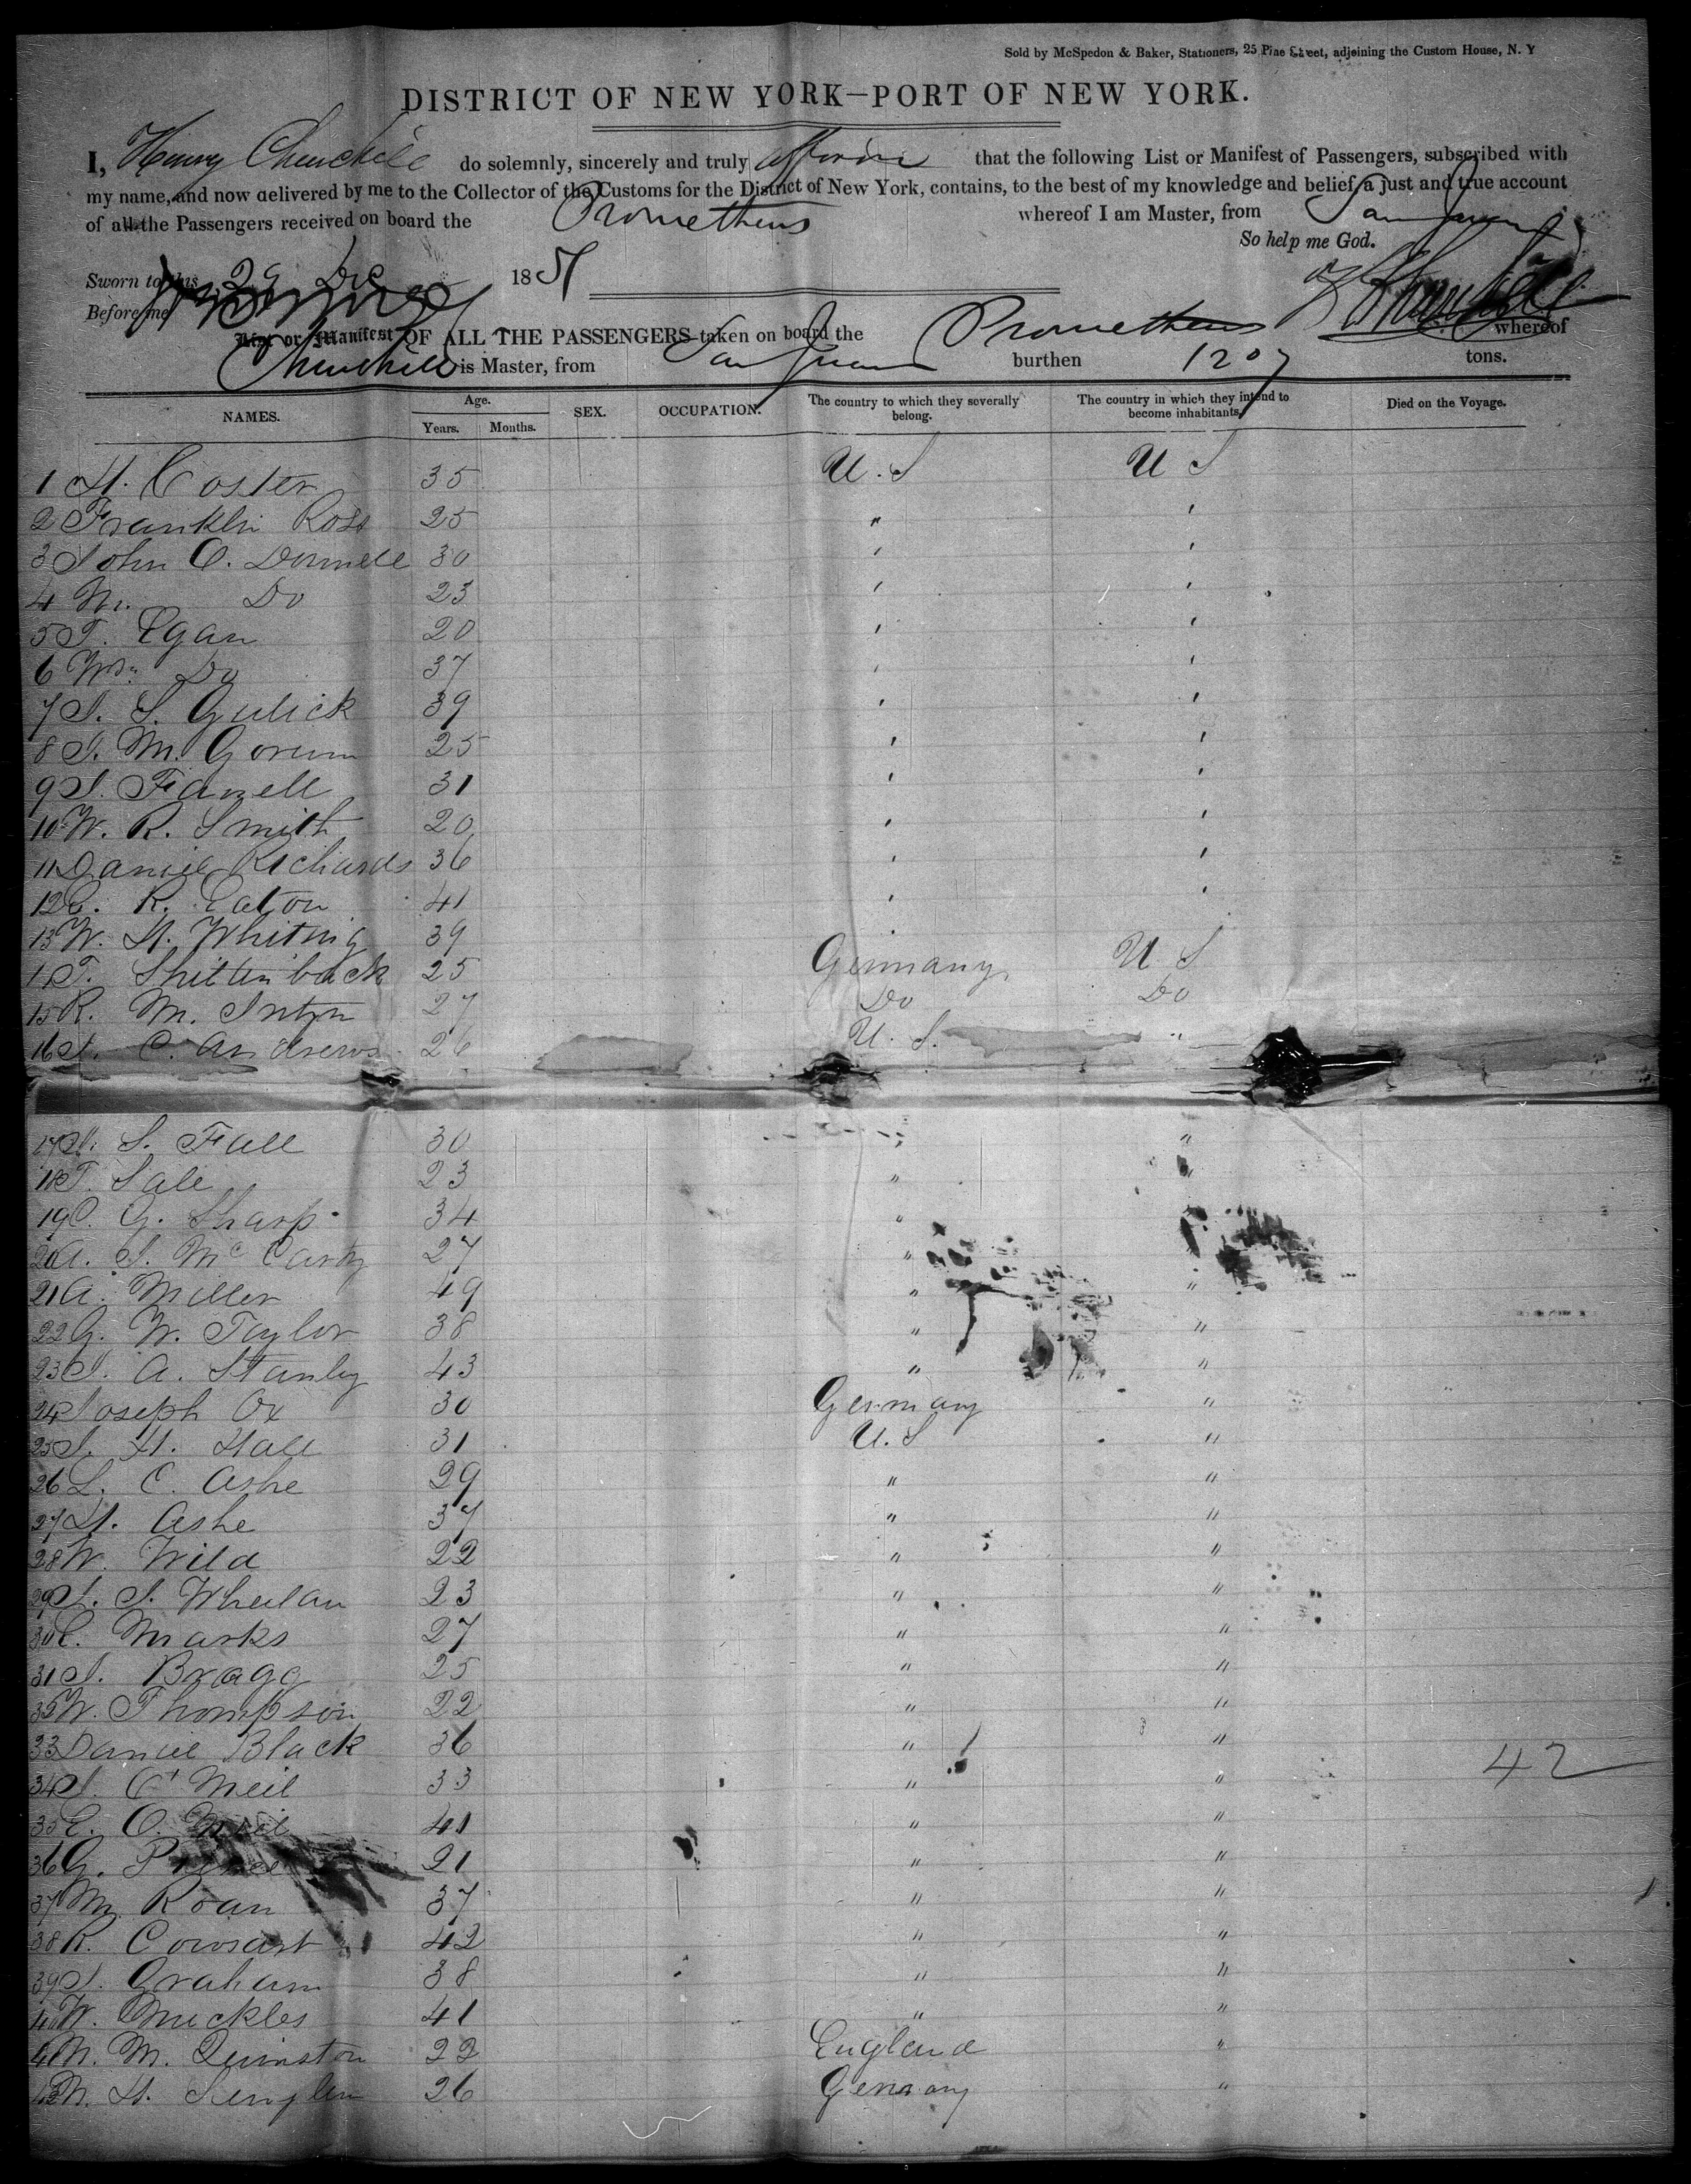 Sold by McSpedon & Baker, Stationers, 25 Pine Street, adjoining the Custom House, N. Y
DISTRICT OF NEW YORK—PORT OF NEW YORK.
I, Henry Churchill do solemnly, sincerely and truly affirm that the following List or Manifest of Passengers, subscribed with
my name, and now delivered by me to the Collector of the Customs for the District of New York, contains, to the best of my knowledge and belief, a just and true account
of all the Passengers received on board the Prometheus whereof I am Master, from San Juan
So help me God.
Sworn to this 29 Dec 1851
Before me H Churchill
List or Manifest OF ALL THE PASSENGERS taken on board the Prometheus whereof
Churchill is Master, from San Juan burthen 1207 tons.
NAMES. Age. Years. Months. SEX. OCCUPATION. The country to which they severally belong. The country in which they intend to become inhabitants. Died on the Voyage.
1 H. Coster 35 U.S U S
2 Franklin Ross 25 " "
3 John O. Donnell 30 " "
4 M. Do 23 " "
5 T. Egan 20 " "
6 Wm Do 37 " "
7 J. S. Gulick 39 " "
8 J. M. Gorum 25 " "
9 J. Farrell 31 " "
10 W. R. Smith 20 " "
11 Daniel Richards 36 " "
12 C. R. Eaton 41 " "
13 W. H. Whiting 39 "
1 T. 25 Germany U S
15 R. M. 27 Do Do
16 J. C. Andrews 26 U. S. "
17 S. Fall 30 " "
18 T. Sale 23 " "
19 C. G. Sharp 34 " "
20 A. J. McCarty 27 " "
21 A. Miller 49 " "
22 G. W. Taylor 38 " "
23 J. A. Stanley 43 " "
24 Joseph Ox 30 Germany "
25 J. H. Hall 31 U.S "
26 L. C. Ashe 29 " "
27 H. Ashe 37 " "
28 W. Wild 22 " "
29 J. J. Whelan 23 " "
30 C. Marks 27 " "
31 J. Bragg 25 " "
32 W. Thompson 22 " "
33 Daniel Black 36 " "
34 J. O' Neil 33 " " 42
35 E. O. Neil 41 " "
36 G. 21 " "
37 M. Roan 37 " "
38 R. Cowsart 42 " "
39 J. Graham 38 " "
40 W. Muckles 41 " "
41 M. M. Quinston 22 England "
42 M. H. 26 Germany "